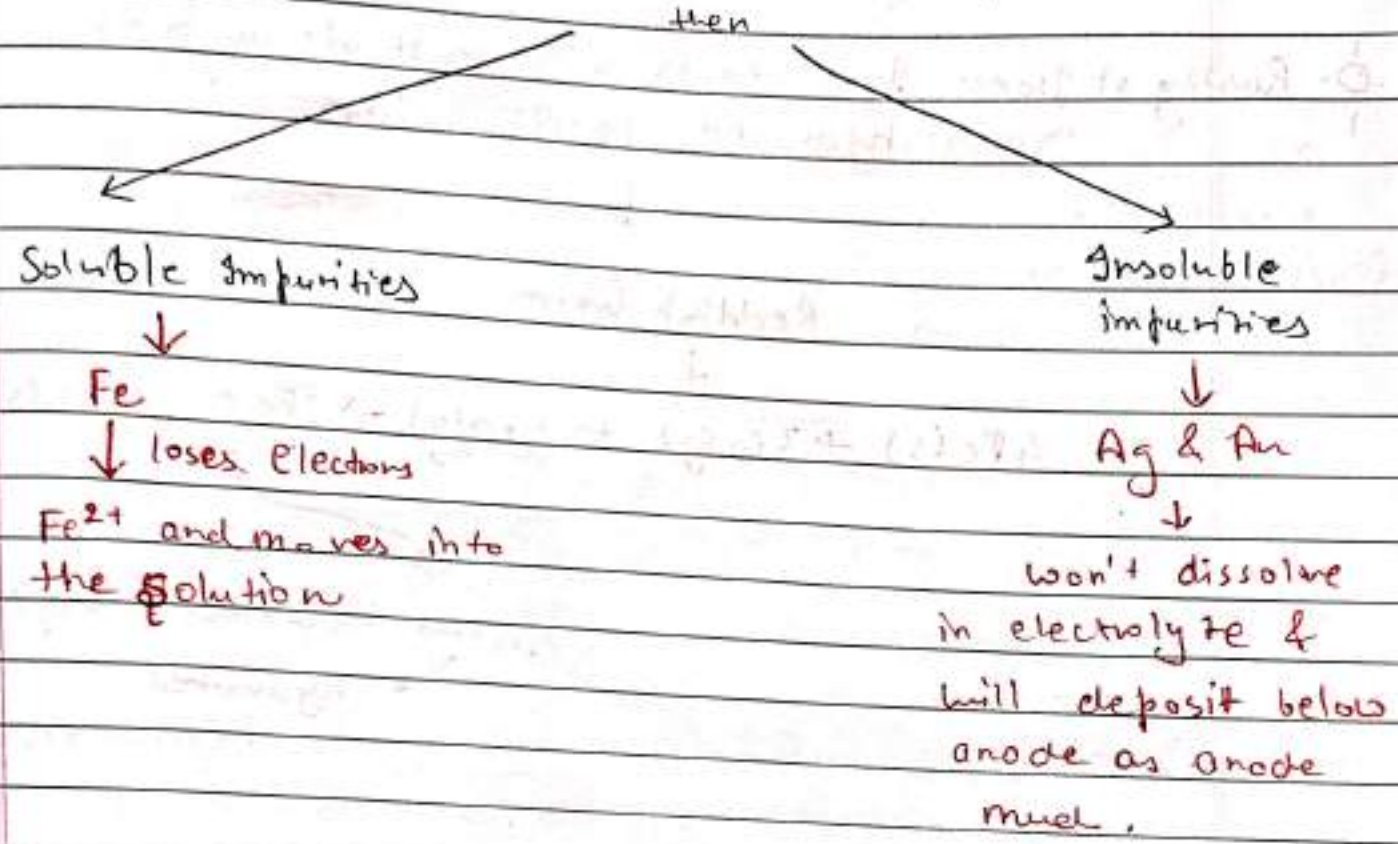 then
Soluble Impurities
↓
Fe
↓ loses Electrons
Fe²⁺ and moves into
the Solution
Insoluble
impurities
↓
Ag & Au
↓
won't dissolve
in electrolyte &
will deposit below
anode as anode
mud.